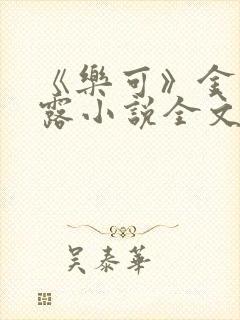 《樂可》金
露小說全文
吴泰華